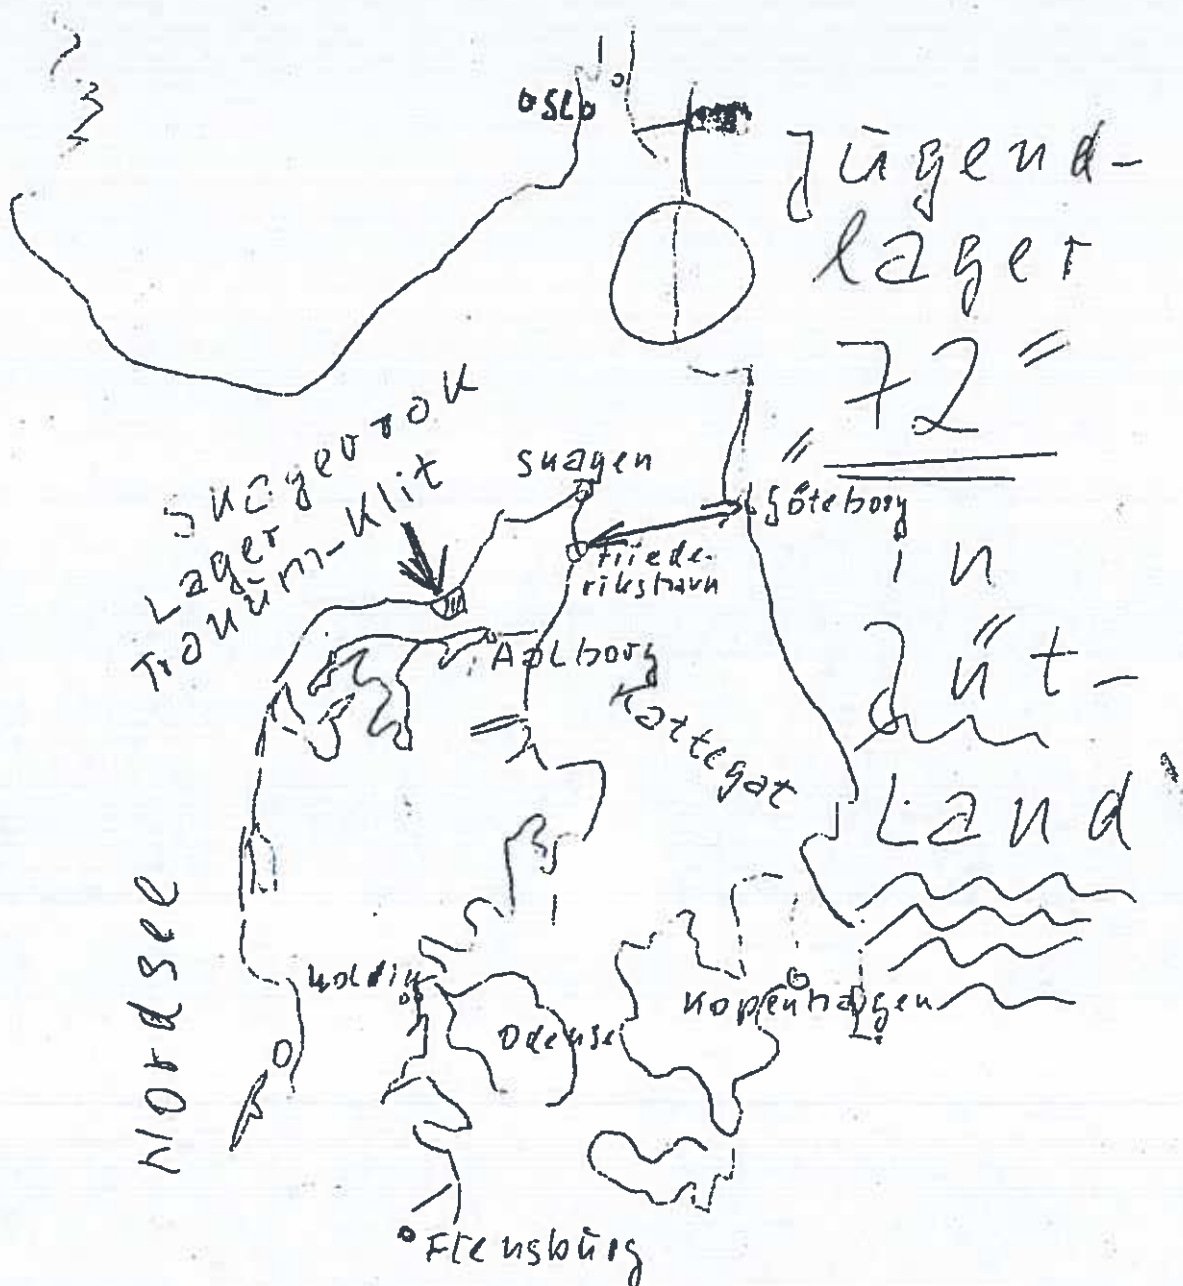 OSLO
Jügend-
lager
"72"
in
Jüt-
Land
Skagerrok
Lager
Tranüm-Klit
Skagen
Göteborg
Friede-
rikshavn
Aalborg
Kattegat
Nordsee
Kolding
Odense
Kopenhagen
Flensbürg